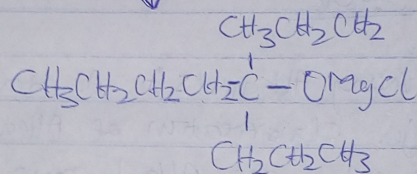 CH3CH2CH2
CH3CH2CH2CH2-C-OMgCl
CH2CH2CH3